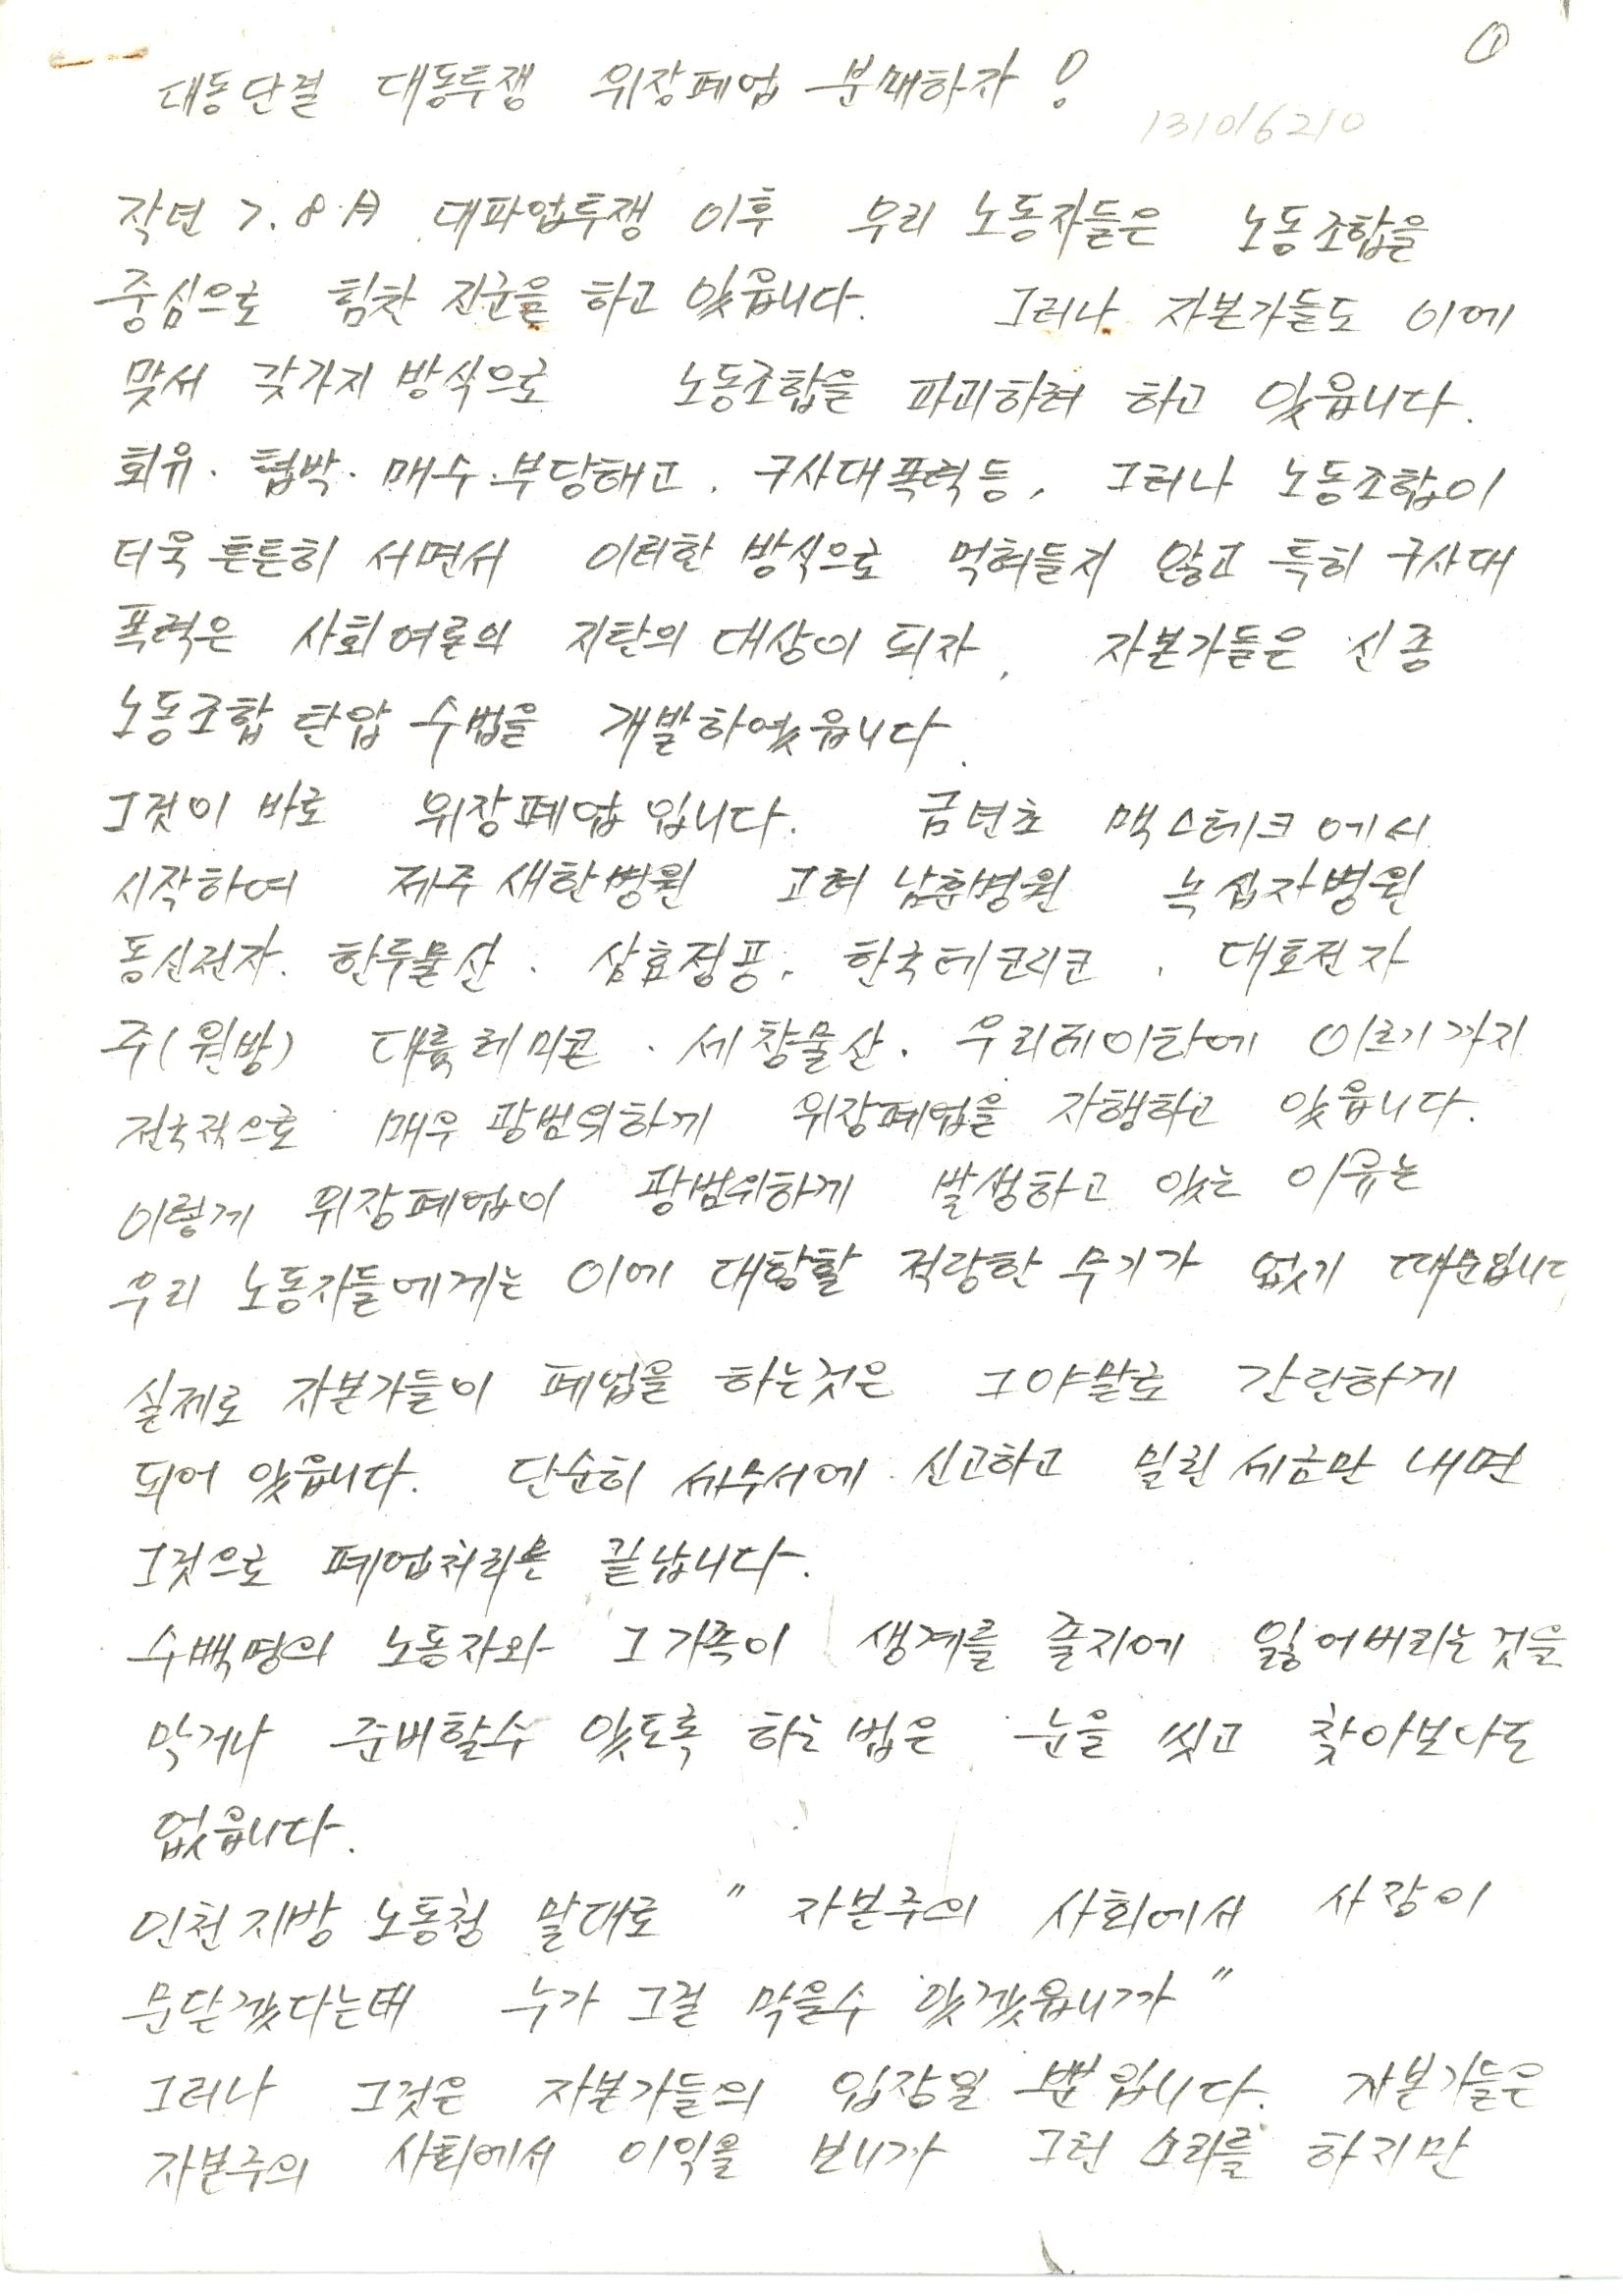 ①
대동단결 대동투쟁 위장폐업 분쇄하자!
131016210
작년 7.8月 대파업투쟁 이후 우리 노동자들은 노동조합을
중심으로 힘찬 진군을 하고 있읍니다. 그러나 자본가들도 이에
맞서 갖가지 방식으로 노동조합을 파괴하려 하고 있읍니다.
회유. 협박. 매수. 부당해고. 구사대폭력등, 그러나 노동조합이
더욱 튼튼히 서면서 이러한 방식으로 먹혀들지 않고 특히 구사대
폭력은 사회여론의 지탄의 대상이 되자, 자본가들은 신종
노동조합 탄압 수법을 개발하였읍니다.
그것이 바로 위장폐업입니다. 금년초 맥스테크에서
시작하여 제주 새한병원 고혀 남훈병원 녹십자병원
동신전자. 한두물산. 삼효정공. 한국테크리코. 대호전자
주(원방) 대륙레미콘. 세창물산. 우리데이타에 이르기까지
전국적으로 매우 광범위하게 위장폐업을 자행하고 있읍니다.
이렇게 위장폐업이 광범위하게 발생하고 있는 이유는
우리 노동자들에게는 이에 대항할 적랑한 무기가 없기 때문입니다
실제로 자본가들이 폐업을 하는것은 그야말로 간단하게
되어 있읍니다. 단순히 세무서에 신고하고 밀린 세금만 내면
그것으로 폐업처리는 끝납니다.
수백명의 노동자와 그 가족이 생계를 졸지에 잃어버리는 것을
막거나 준비할수 있도록 하는 법은 눈을 씻고 찾아보아도
없읍니다.
인천지방 노동청 말대로 " 자본주의 사회에서 사장이
문닫겠다는데 누가 그걸 막을수 있겠읍니까"
그러나 그것은 자본가들의 입장일 뿐입니다. 자본가들은
자본주의 사회에서 이익을 보니까 그런 소리를 하지만